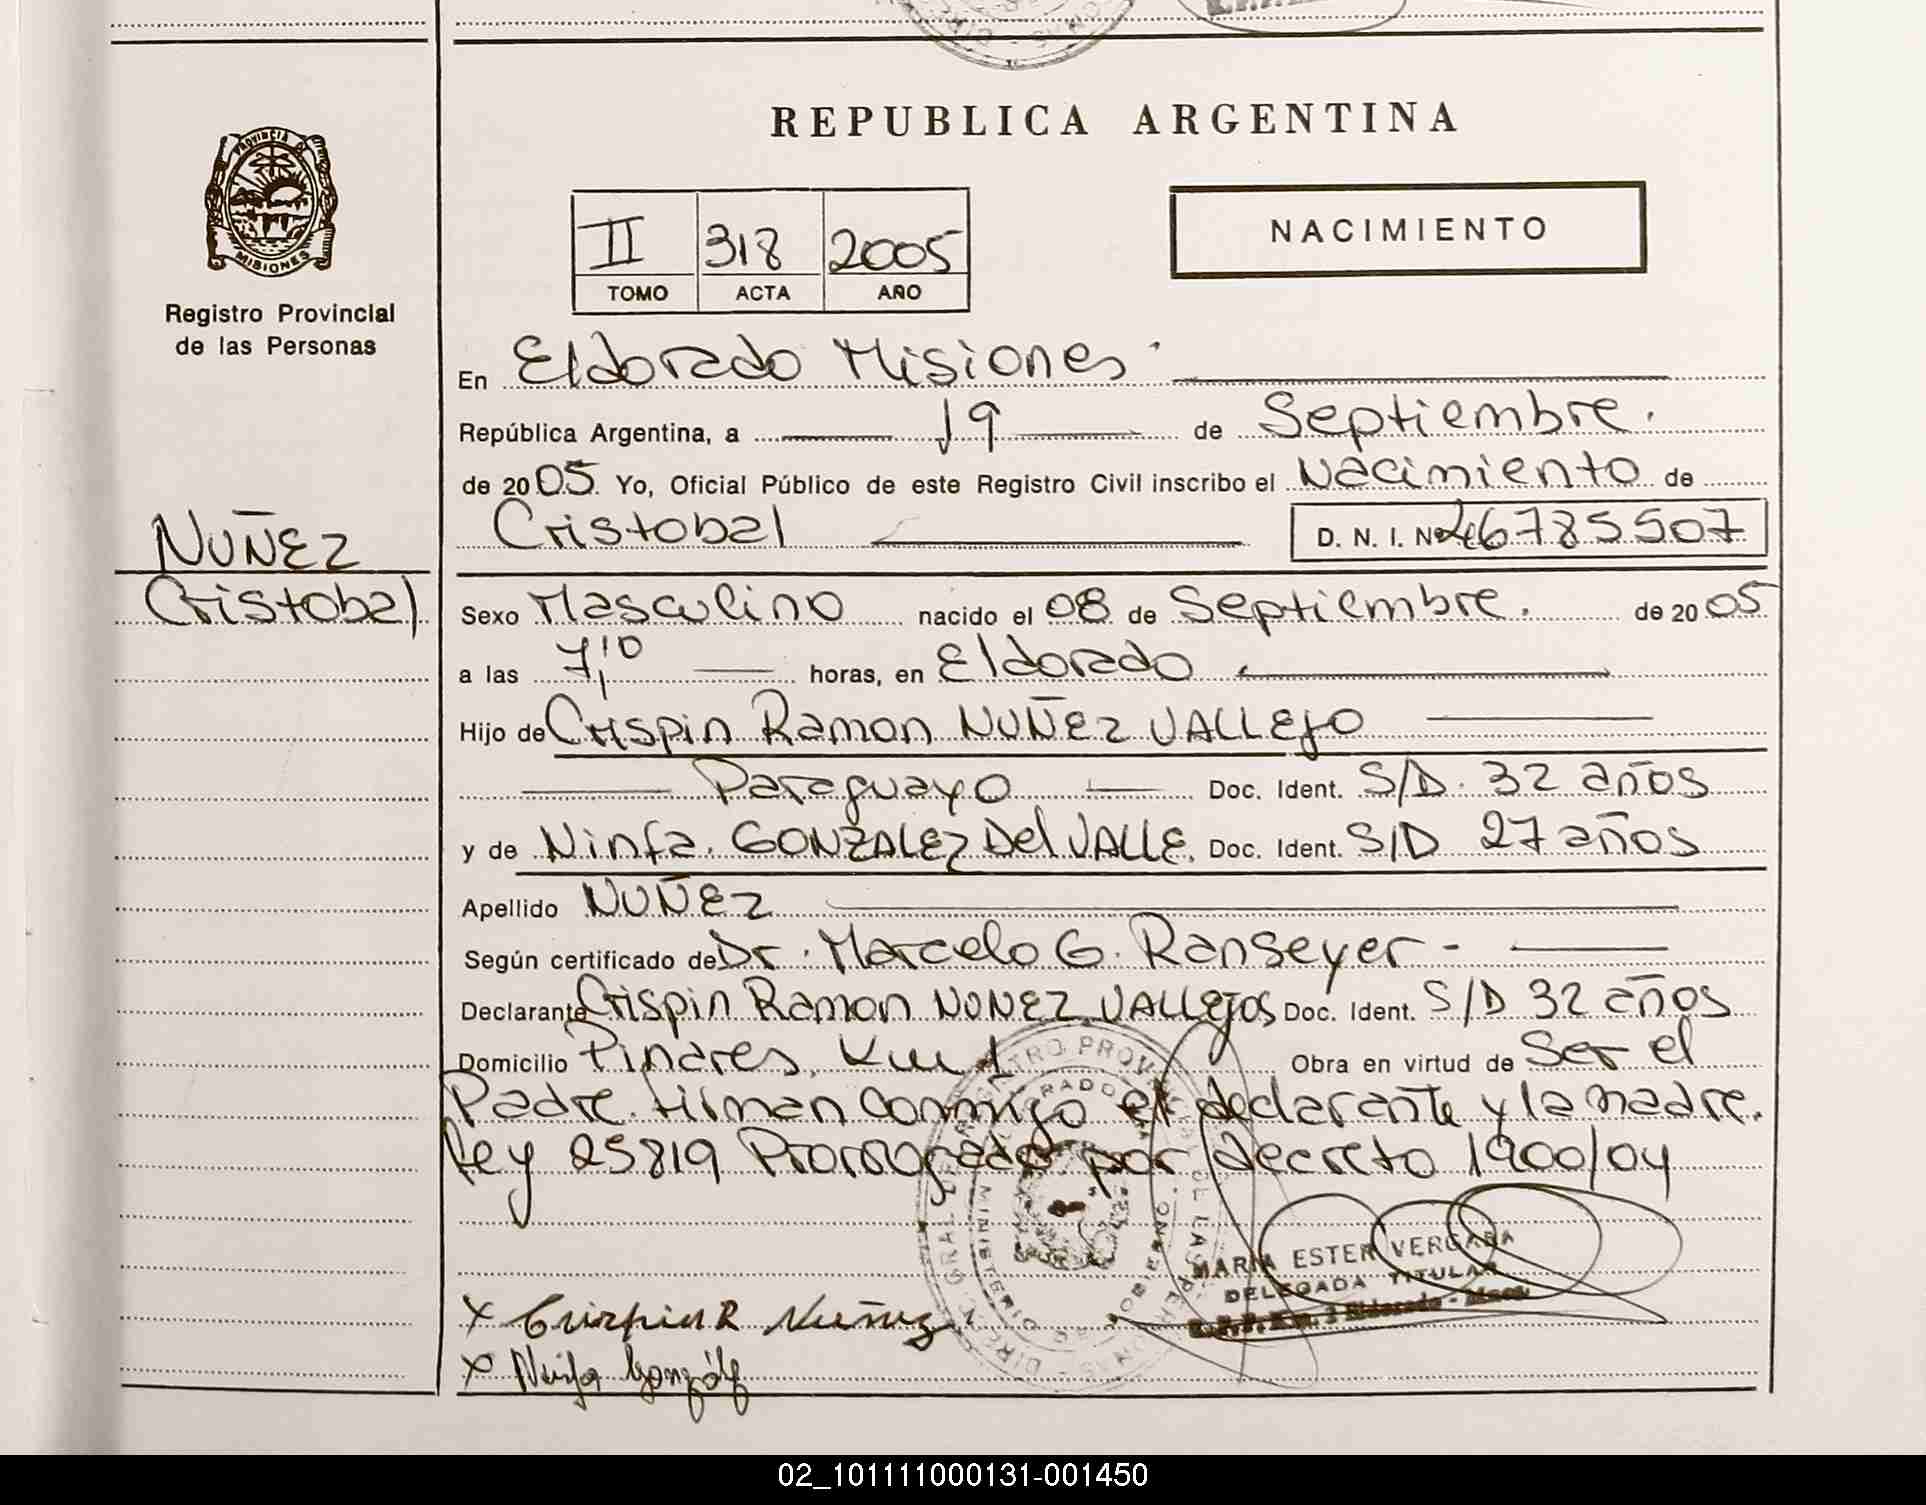 REPUBLICA ARGENTINA
PROVINCIA DE MISIONES
Registro Provincial
de las Personas
II 318 2005
TOMO ACTA AÑO
NACIMIENTO
En Eldorado Misiones
República Argentina, a 19 de Septiembre.
de 2005. Yo, Oficial Público de este Registro Civil inscribo el Nacimiento de
Cristobal D. N. I. Nº 46785507
NUÑEZ
Cristobal
Sexo Masculino nacido el 08 de Septiembre. de 2005
a las 7,10 horas, en Eldorado
Hijo de Crispin Ramon NUÑEZ VALLEJO
Paraguayo Doc. Ident. S/D. 32 años
y de Ninfa. GONZALEZ Del VALLE. Doc. Ident. S/D 27 años
Apellido NUÑEZ
Según certificado de Dr. Marcelo G. Ranseyer -
Declarante Crispin Ramon NUNEZ VALLEJOS Doc. Ident. S/D 32 años
Domicilio Pinares, Km 1 Obra en virtud de Ser el
Padre. Firman conmigo el declarante y la madre.
Ley 25819 Prorrogado por decreto 1900/04
MARIA ESTER VERGARA
DELEGADA TITULAR
X Crispin R Nuñez
X Ninfa González
02_101111000131-001450